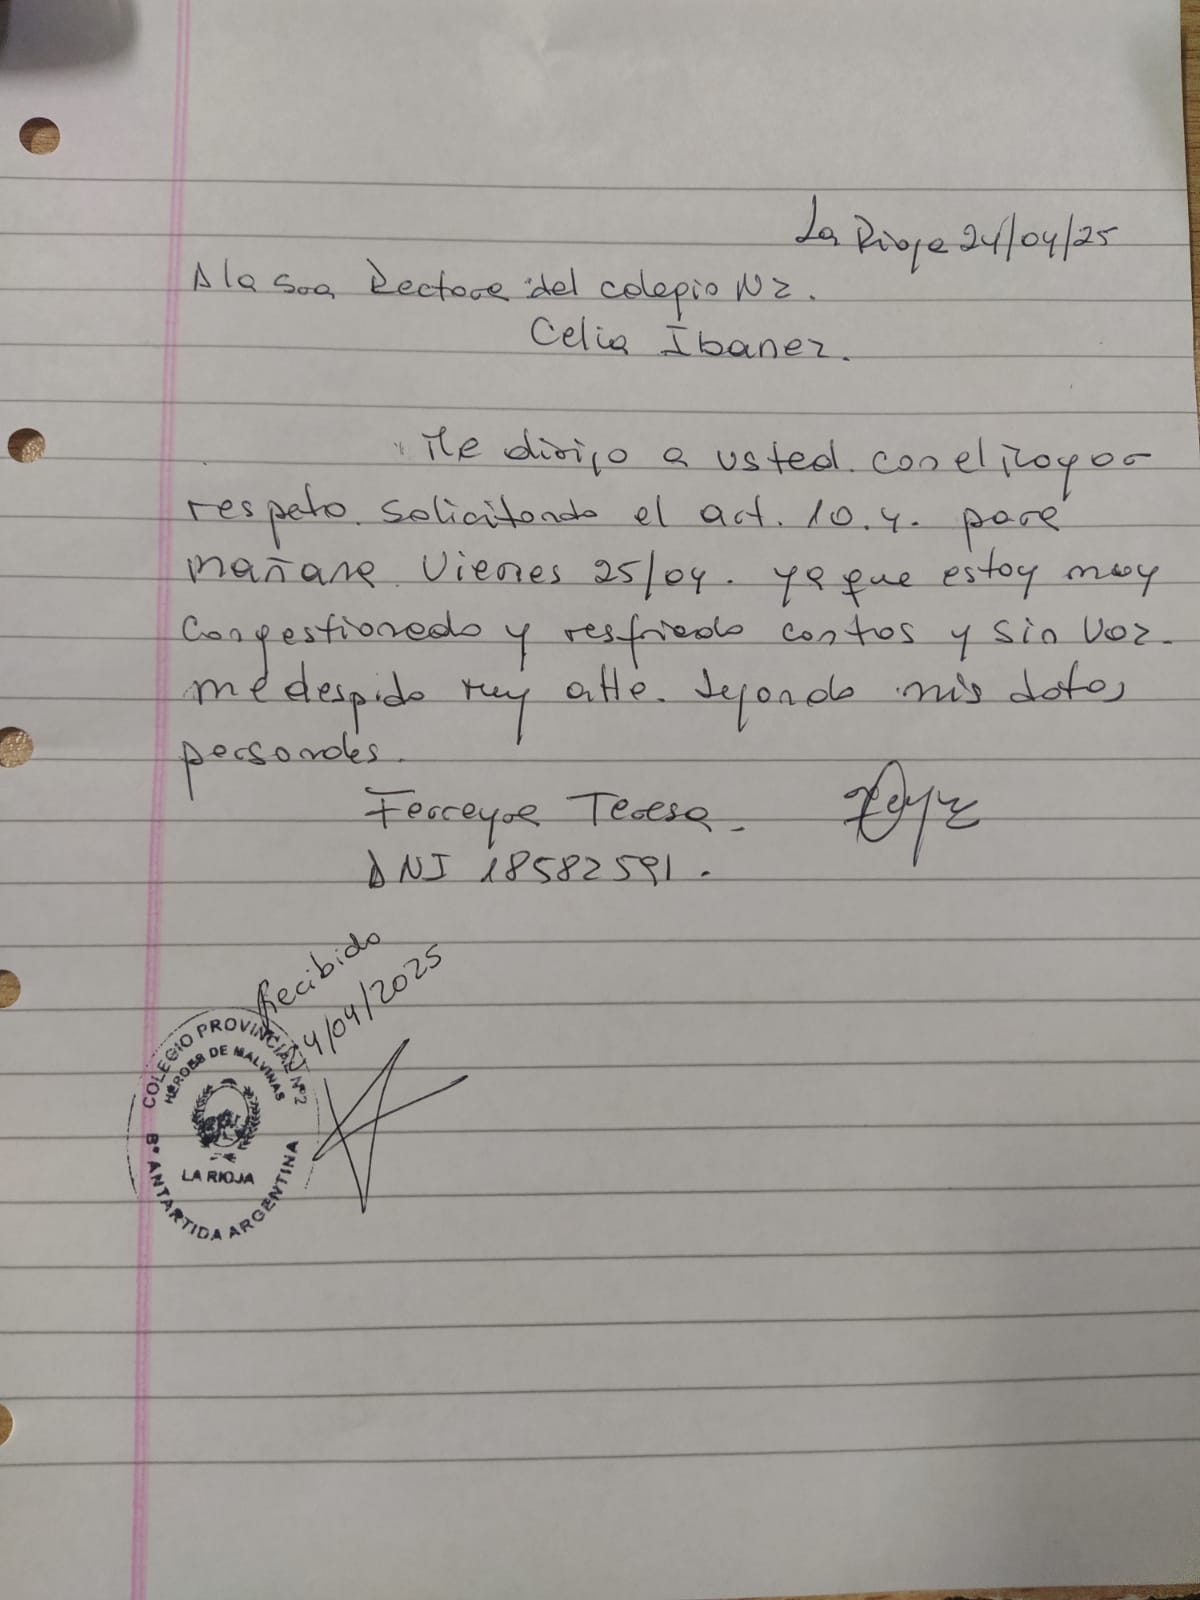 La Rioja 24/04/25
A la Sra Rectora del colegio N2.
Celia Ibanez.
Me dirijo a usted. con el mayor
respeto. solicitando el art. 10.4. para
mañana. Viernes 25/04. ya que estoy muy
congestionada y resfriada con tos y sin voz.
me despido muy atte. dejando mis datos
personales.
Ferreyra Teresa.
DNI 18582591.
Recibido
24/04/2025
COLEGIO PROVINCIAL Nº2
HÉROES DE MALVINAS
LA RIOJA
Bº ANTARTIDA ARGENTINA